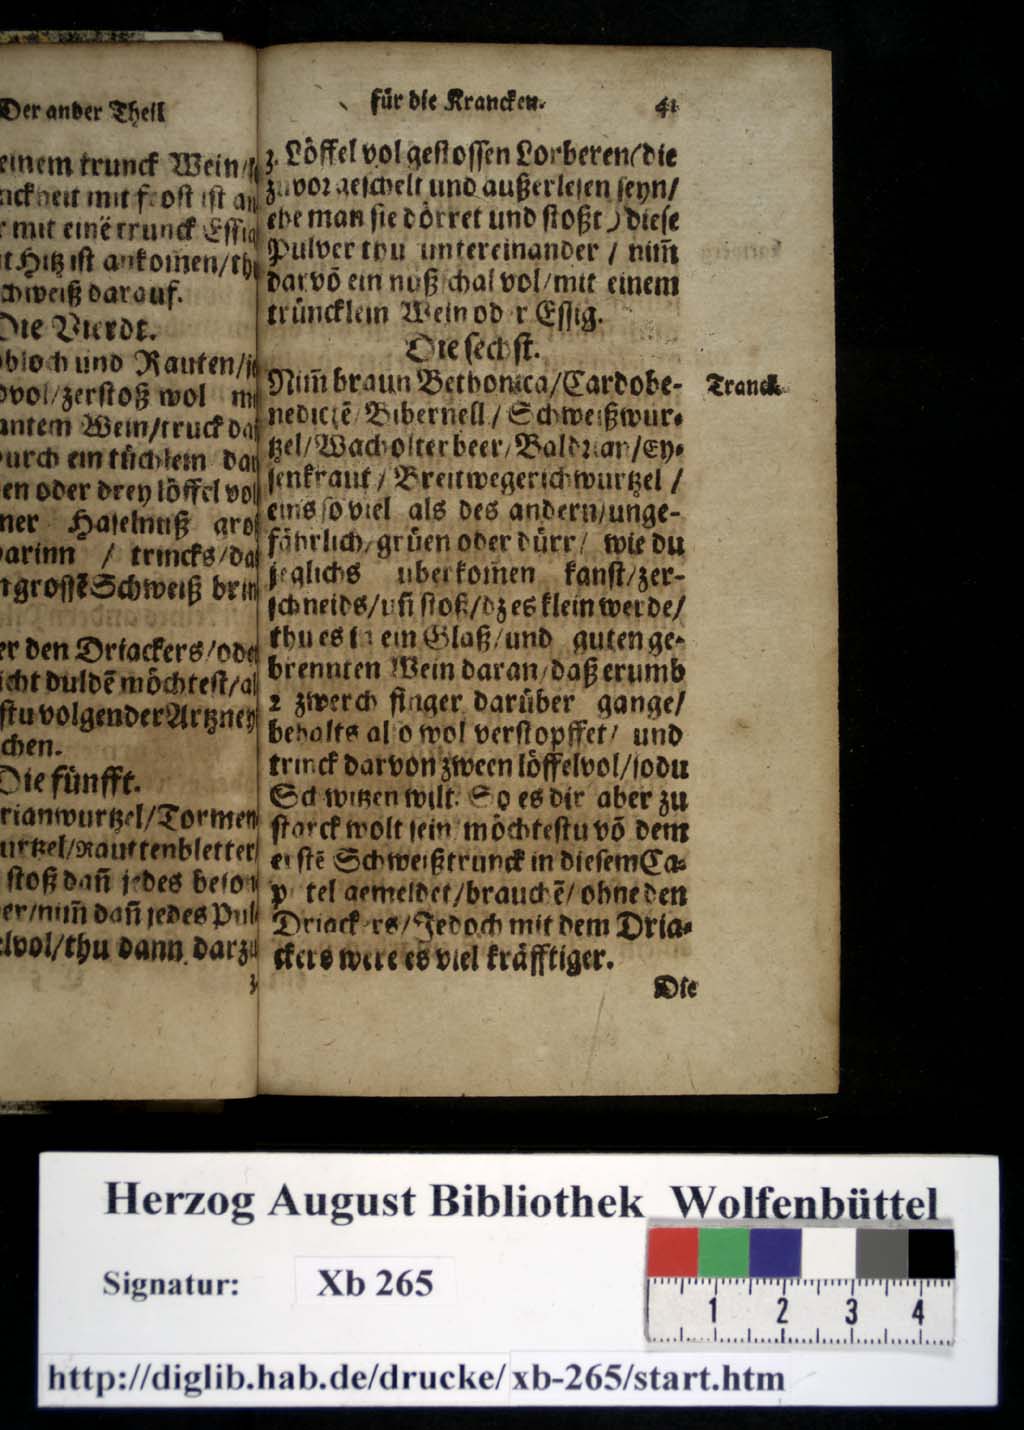 Der ander Theil
einem trunck Wein/
mit frost ist an
mit einē trunck Essig
Hitz ist ankomen/thu
schweiß darauf.
Die Vierdt.
und Rauten/
zerstoß wol mit
Wein/truck
durch ein tüchlein
oder drey löffel vol
Haselnuß groß
darinn / trincks/
grossē Schweiß
den Driackers/oder
nicht duldē möchtest/al
volgender Artzney
chen.
Die fünfft.
rianwurtzel/Tormen
urtzel/Rauttenbletter
stoß dañ jedes beson
er/nim̃ dañ jedes Pul
elvol/thu dann darzu
3.
für die Krancken. 41
3. Löffel vol gestossen Lorberen(die
zuvor geschelt und außerlesen seyn/
ehe man sie dörret und stoßt) diese
Pulver thu untereinander / nim̃
darvō ein nußschal vol/mit einem
trüncklein Wein oder Essig.
Die sechst.
Nim̃ braun Bethonica/Cardobe-
nedictē/Bibernell/Schweißwur-
tzel/Wacholterbeer/Baldrian/Ey-
senkraut/Breitwegerichwurtzel/
eins so viel als des andern/unge-
fährlich/grüen oder dürr/ wie du
jeglichs uberkom̃en kanst/zer-
schneids/uñ stoß/dz es klein werde/
thu es in ein Glaß/und guten ge-
brennten Wein daran/daß er umb
2 zwerch finger darüber gange/
behalts also wol verstopffet/ und
trinck darvon zween löffelvol/so du
Schwitzen wilt. So es dir aber zu
starck wolt sein möchtestu vō dem
erstē Schweißtrunck in diesem Ca-
pitel gemeldet/brauchē/ohne den
Driackers/Jedoch mit dem Dria-
ckers were es viel kräfftiger.
Die
Tranck
Herzog August Bibliothek Wolfenbüttel
Signatur: Xb 265
1 2 3 4
http://diglib.hab.de/drucke/xb-265/start.htm